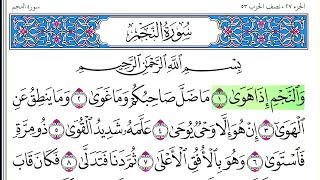 الجزء ٢٧ - نصف الحزب ٥٣
سورة النجم
سُورَةُ النَّجْمِ
بِسْمِ اللَّهِ الرَّحْمَٰنِ الرَّحِيمِ
وَالنَّجْمِ إِذَا هَوَىٰ ١ مَا ضَلَّ صَاحِبُكُمْ وَمَا غَوَىٰ ٢ وَمَا يَنطِقُ عَنِ
الْهَوَىٰ ٣ إِنْ هُوَ إِلَّا وَحْيٌ يُوحَىٰ ٤ عَلَّمَهُ شَدِيدُ الْقُوَىٰ ٥ ذُو مِرَّةٍ
فَاسْتَوَىٰ ٦ وَهُوَ بِالْأُفُقِ الْأَعْلَىٰ ٧ ثُمَّ دَنَا فَتَدَلَّىٰ ٨ فَكَانَ قَابَ